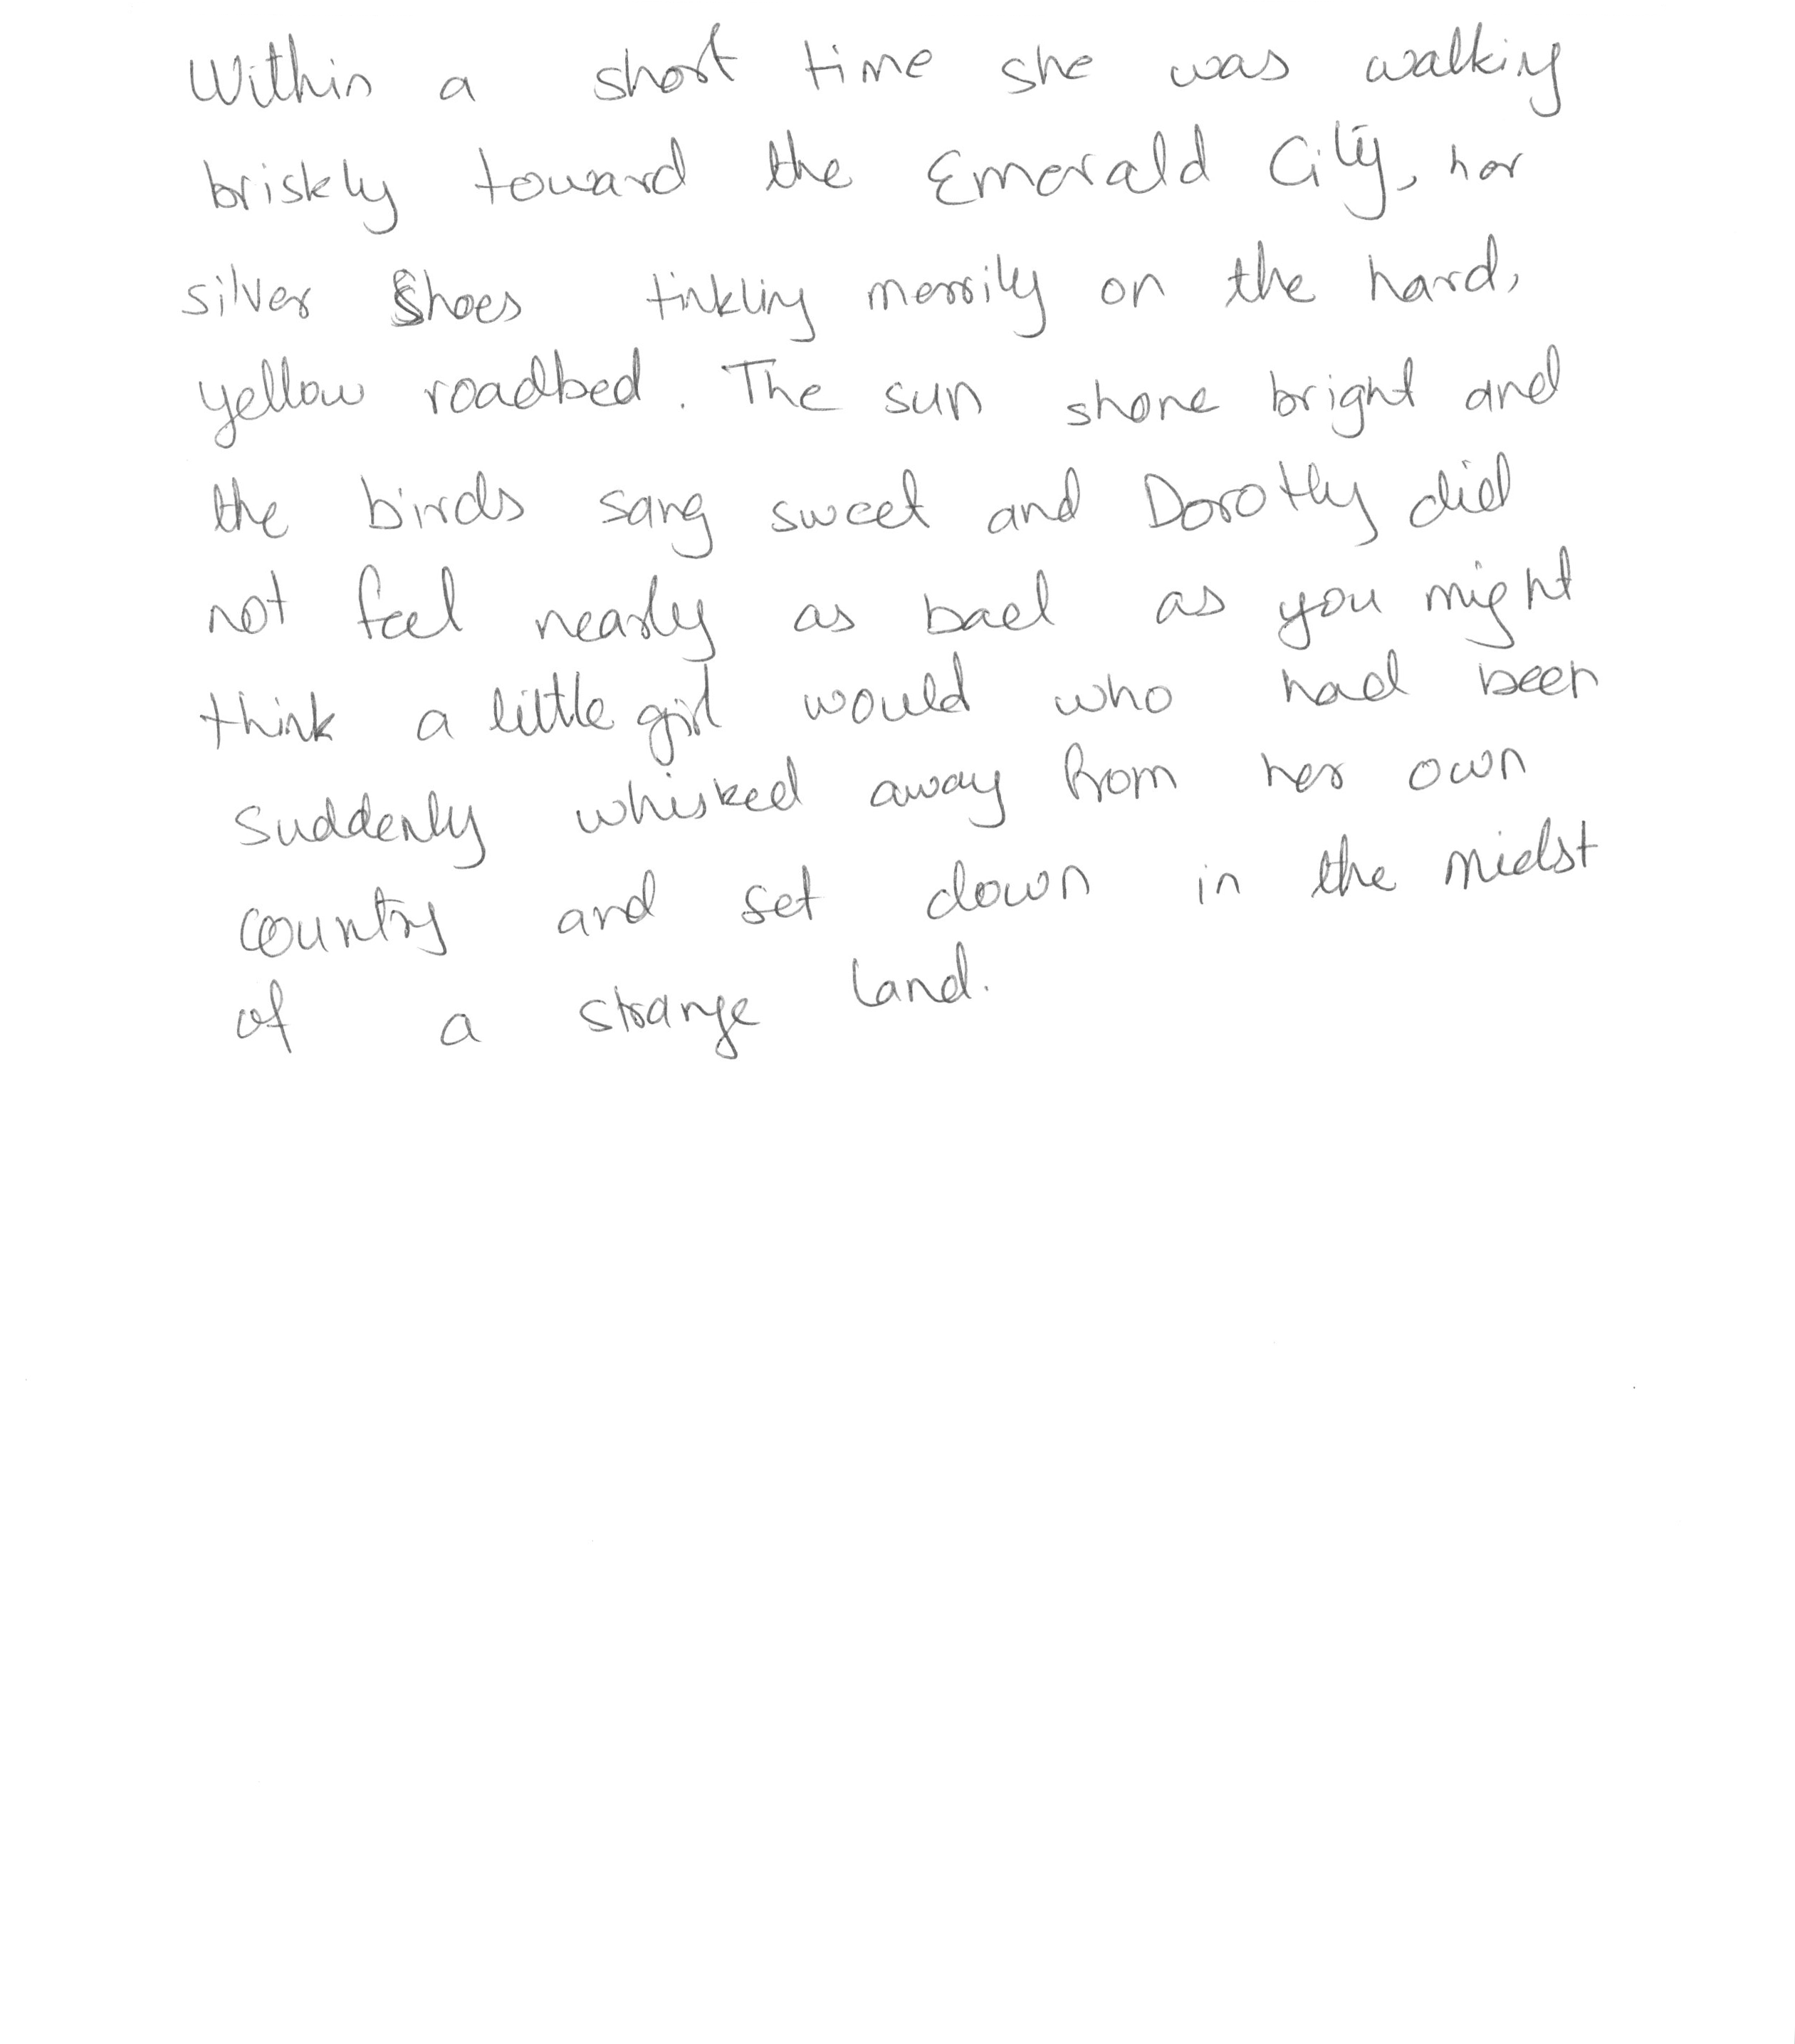 Within a short time she was walking
briskly toward the Emerald City, her
silver Shoes tinkling merrily on the hard,
yellow roadbed. The sun shone bright and
the birds sang sweet and Dorothy did
not feel nearly as bad as you might
think a little girl would who had been
suddenly whisked away from her own
country and set down in the midst
of a strange land.